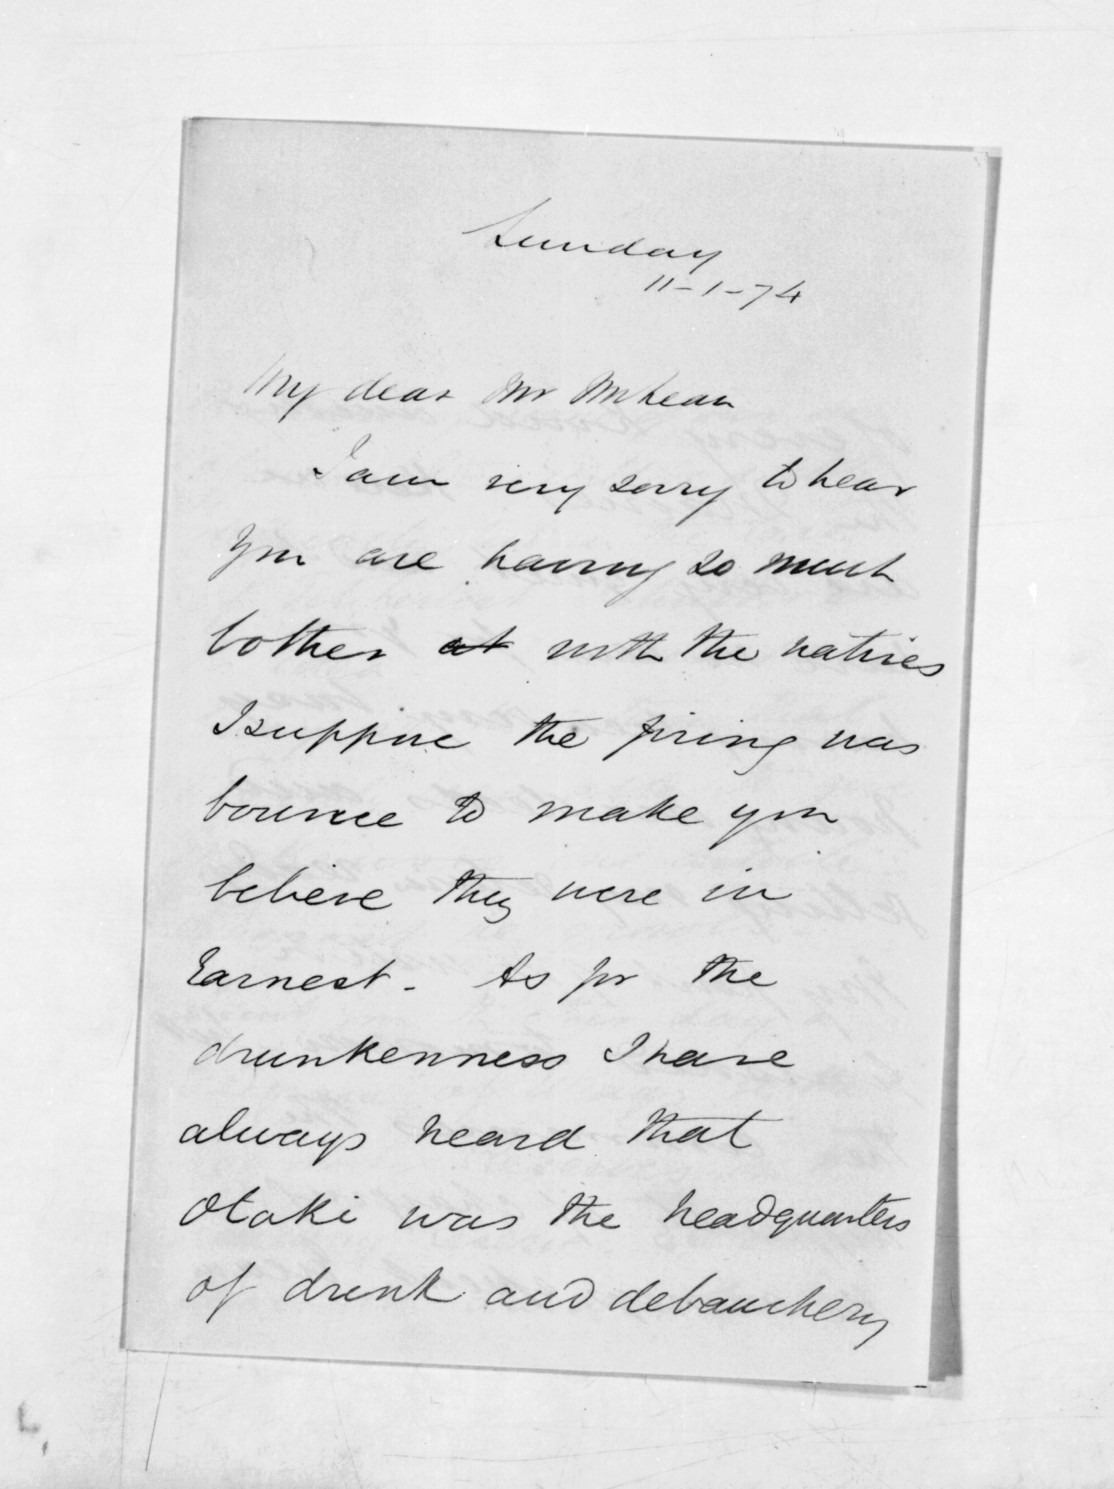 Sunday
11-1-74
My dear Mr McLean
I am very sorry to hear
you are having so much
bother at with the natives
I suppose the firing was
bounce to make you
believe they were in
Earnest. As for the
drunkenness I have
always heard that
Otaki was the headquarters
of drink and debauchery